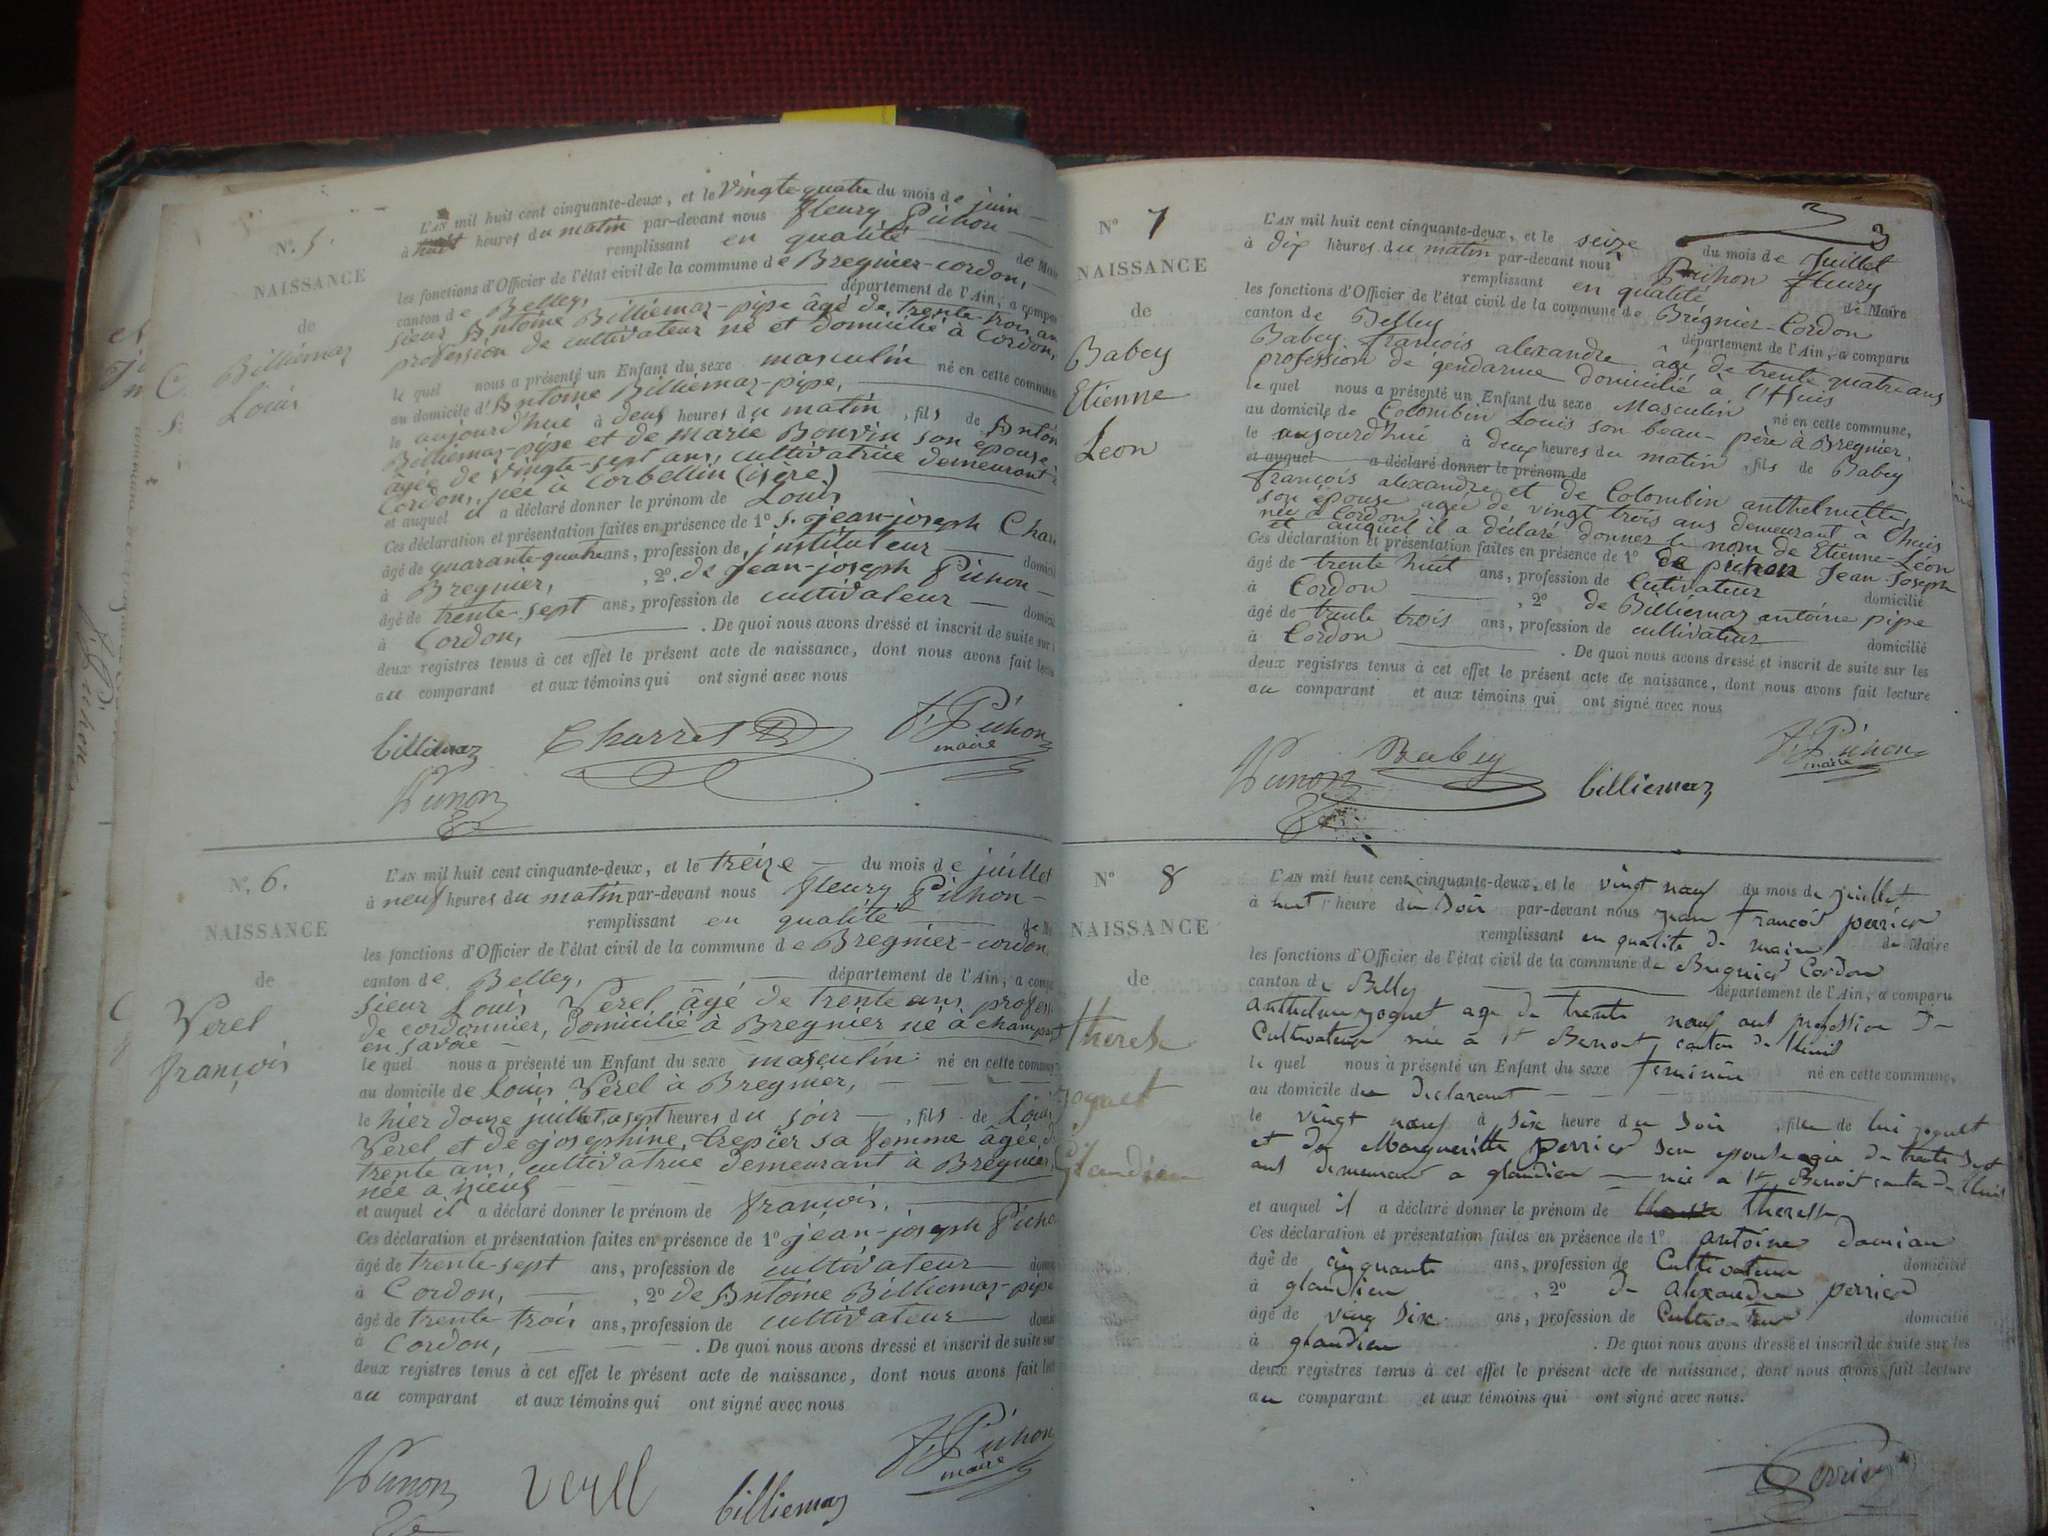 N°. 5.
NAISSANCE
de
Billiemaz
Louis
L'AN mil huit cent cinquante-deux, et le Vingt-quatre du mois de juin
à huit heures du matin par-devant nous fleury Pichon
remplissant en qualité de Maire
les fonctions d'Officier de l'état civil de la commune de Bregnier-cordon,
canton de Belley, département de l'Ain, a comparu
sieur Antoine Billiemaz-pipe âgé de trente-trois ans
profession de cultivateur né et domicilié à Cordon,
le quel nous a présenté un Enfant du sexe masculin né en cette commune
au domicile d'Antoine Billiemaz-pipe,
le aujourd'hui à deux heures du matin, fils de Anton
Billiemaz-pipe et de Marie Bouvin son épouse
âgée de Vingt-sept ans, cultivatrice demeurant à
Cordon, née à Corbellin (isère)
et auquel il a déclaré donner le prénom de Louis
Ces déclaration et présentation faites en présence de 1° S. jean-joseph Char
âgé de quarante-quatre ans, profession de instituteur domicil
à Bregnier, , 2° de jean-joseph Pichon
âgé de trente-sept ans, profession de cultivateur domicil
à Cordon, . De quoi nous avons dressé et inscrit de suite sur l
deux registres tenus à cet effet le présent acte de naissance, dont nous avons fait lecture
au comparant et aux témoins qui ont signé avec nous
billiemaz Charret F. Pichon
maire
N°. 6.
NAISSANCE
de
Verel
françois
L'AN mil huit cent cinquante-deux, et le treize du mois de juillet
à neuf heures du matin par-devant nous fleury Pichon
remplissant en qualité de M
les fonctions d'Officier de l'état civil de la commune de Bregnier-cordon
canton de Belley, département de l'Ain, a comp
sieur Louis Verel âgé de trente ans profess
de cordonnier, domicilié à Bregnier né à
en savoie
le quel nous a présenté un Enfant du sexe masculin né en cette commune
au domicile de Louis Verel à Bregnier,
le hier douze juillet, a sept heures du soir, fils de Louis
Verel et de josephine trepier sa femme âgée de
trente ans, cultivatrice demeurant à Bregnier,
née a
et auquel il a déclaré donner le prénom de françois,
Ces déclaration et présentation faites en présence de 1° jean-joseph Picho
âgé de trente-sept ans, profession de cultivateur domic
à Cordon, , 2° de Antoine Billiemaz-pipe
âgé de trente trois ans, profession de cultivateur domic
à Cordon, . De quoi nous avons dressé et inscrit de suite sur
deux registres tenus à cet effet le présent acte de naissance, dont nous avons fait lect
au comparant et aux témoins qui ont signé avec nous
verel billiemaz F. Pichon
maire
3
N° 7
NAISSANCE
de
Babey
Etienne
Leon
L'AN mil huit cent cinquante-deux, et le seize du mois de Juillet
à dix heures du matin par-devant nous Pichon fleury
remplissant en qualité de Maire
les fonctions d'Officier de l'état civil de la commune de Brégnier-Cordon
canton de Belley département de l'Ain, a comparu
Babey françois alexandre âgé de trente quatre ans
profession de gendarme domicilié à l'Huis
le quel nous a présenté un Enfant du sexe Masculin né en cette commune,
au domicile de Colombin Louis son beau-père à Bregnier,
le aujourd'hui à deux heures du matin, fils de Babey
et auquel a déclaré donner le prénom de
françois alexandre et de Colombin anthelmette,
son épouse agée de vingt trois ans demeurant à l'huis
née à Cordon
et auquel il a déclaré donner le nom de Etienne-Léon
Ces déclaration et présentation faites en présence de 1° De pichon Jean-Joseph
âgé de trente huit ans, profession de Cutivateur domicilié
à Cordon , 2° de Billiemaz antoine pipe
âgé de trente trois ans, profession de cultivateur domicilié
à Cordon . De quoi nous avons dressé et inscrit de suite sur les
deux registres tenus à cet effet le présent acte de naissance, dont nous avons fait lecture
au comparant et aux témoins qui ont signé avec nous
Babey billiemaz F. Pichon
maire
N° 8
NAISSANCE
de
therese
joguet
Glandieu
L'AN mil huit cent cinquante-deux, et le vingt neuf du mois de juillet
à huit heure du Soir par-devant nous jean françois perrier
remplissant en qualité de maire de Maire
les fonctions d'Officier de l'état civil de la commune de Bregnier Cordon
canton de Belley département de l'Ain, a comparu
joguet age de trente neuf ans profession de
Cultivateur née a st Benoit canton de lhuis
le quel nous à présenté un Enfant du sexe feminin né en cette commune,
au domicile du Declarant
le vingt neuf à Six heure du Soir, fille de lui joguet
et de Margueritte perrier Son epouse agée de trente Sept
ans demeurant a glandieu née a st Benoit canton de lhuis
et auquel il a déclaré donner le prénom de therese
Ces déclaration et présentation faites en présence de 1° antoine damian
âgé de cinquante ans, profession de Cultivateur domicilié
à glandieu , 2° de alexandre perrier
âgé de ving Six ans, profession de Cultivateur domicilié
à glandieu . De quoi nous avons dressé et inscrit de suite sur les
deux registres tenus à cet effet le présent acte de naissance, dont nous avons fait lecture
au comparant et aux témoins qui ont signé avec nous.
Perrier